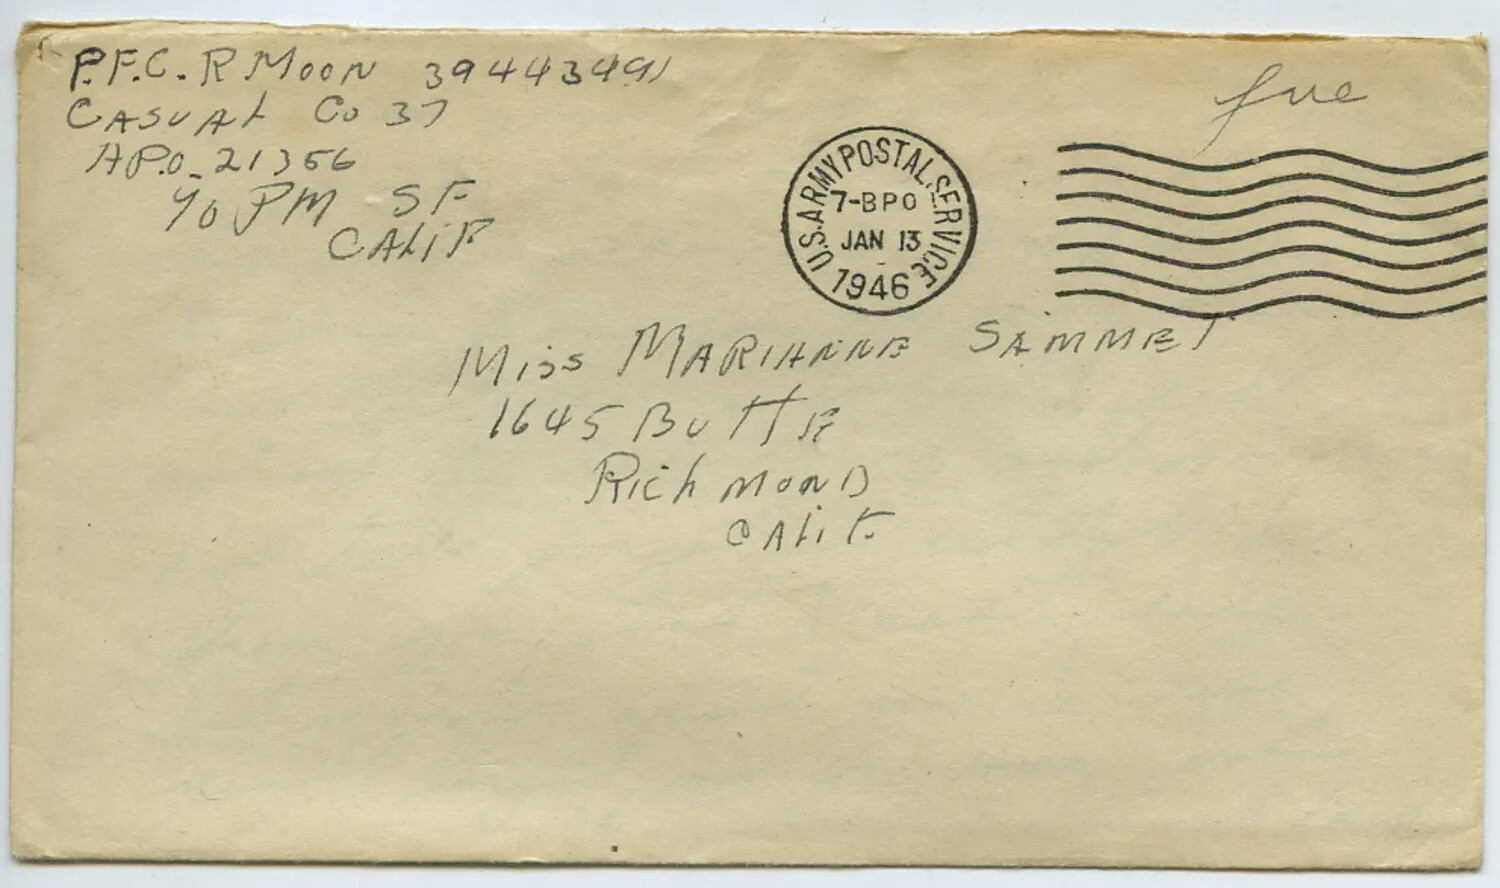 P.F.C. R MOON 39443491
CASUAL CO 37
A.P.O. 21356
c/o PM SF
CALIF
free
U.S. ARMY POSTAL SERVICE
7-BPO
JAN 13
1946
MISS MARIANNE SAMMET
1645 BUTTE
RICHMOND
CALIF.